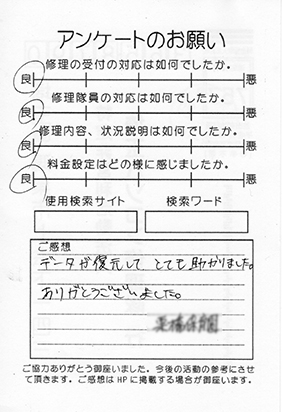 アンケートのお願い
修理の受付の対応は如何でしたか。
良 悪
修理隊員の対応は如何でしたか。
良 悪
修理内容、状況説明は如何でしたか。
良 悪
料金設定はどの様に感じましたか。
良 悪
使用検索サイト 検索ワード
ご感想
データが復元して とても助かりました。
ありがとうございました。
ご協力ありがとう御座いました。今後の活動の参考にさせ
て頂きます。ご感想はHPに掲載する場合が御座います。